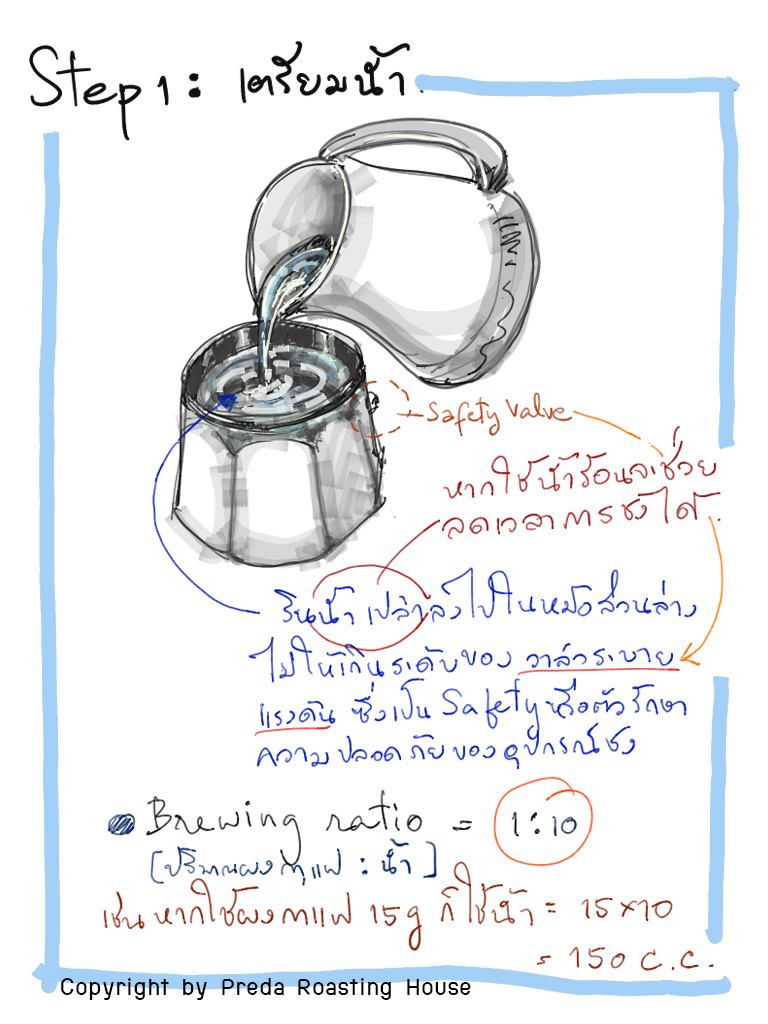 Step 1 : เตรียมน้ำ
Safety valve
หากใช้น้ำร้อนจะช่วย
ลดเวลาการชงได้
รินน้ำเปล่าลงไปในหม้อส่วนล่าง
ไม่ให้เกินระดับของ วาล์วระบาย
แรงดัน ซึ่งเป็น Safety หรือตัวรักษา
ความปลอดภัยของอุปกรณ์ชง
Brewing ratio = 1:10
[ปริมาณผงกาแฟ : น้ำ]
เช่น หากใช้ผงกาแฟ 15g ก็ใช้น้ำ = 15×10
= 150 C.C.
Copyright by Preda Roasting House